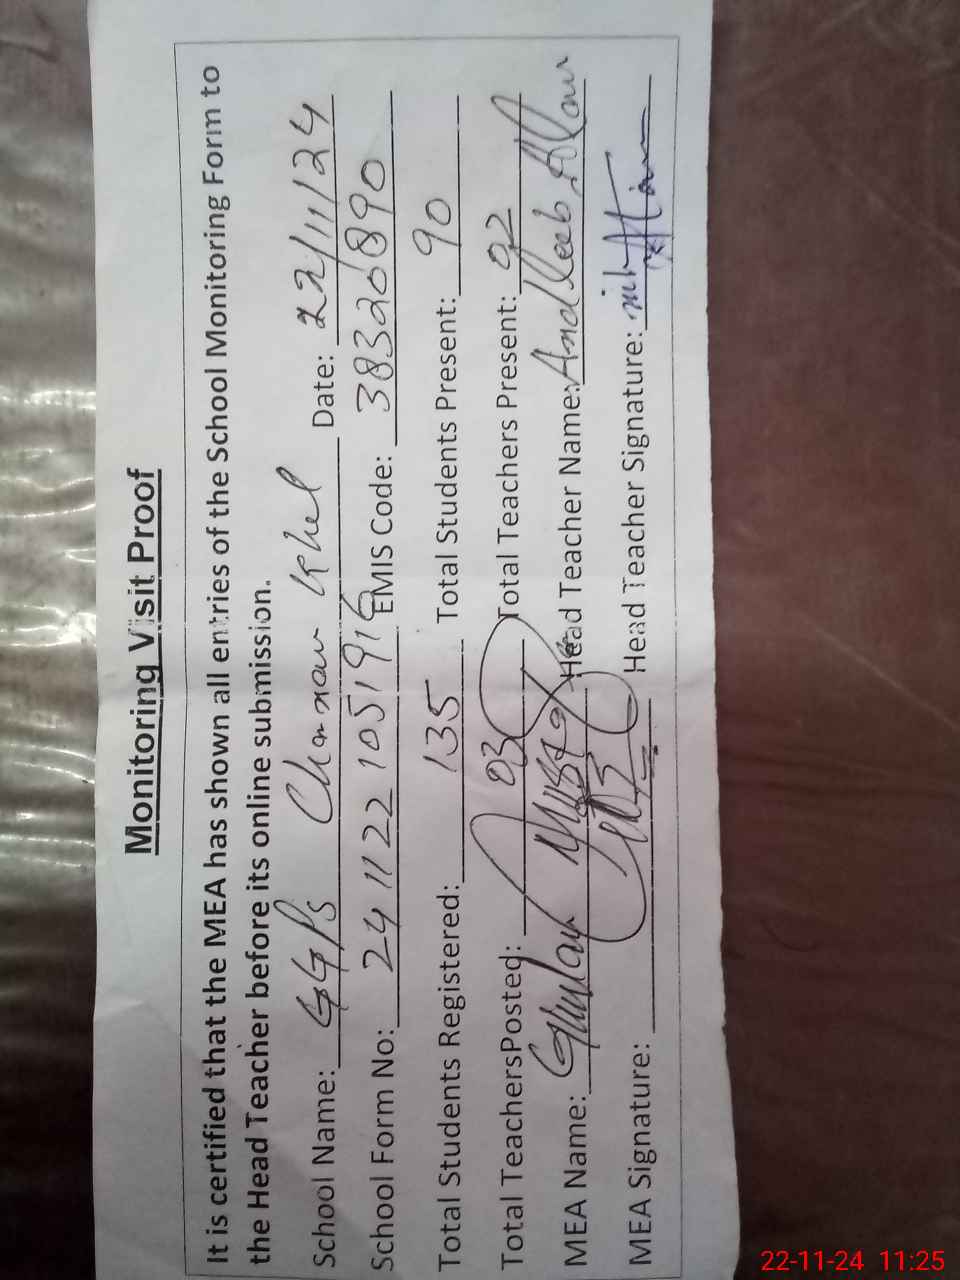 Monitoring Visit Proof
It is certified that the MEA has shown all entries of the School Monitoring Form to
the Head Teacher before its online submission.
School Name: GGPS Chaman Khel Date: 22/11/24
School Form No: 2411122105191 EMIS Code: 38320890
Total Students Registered: 135 Total Students Present: 90
Total TeachersPosted: 03 Total Teachers Present: 02
MEA Name: Ghulam Head Teacher Name: Andleeb
MEA Signature: Head Teacher Signature:
22-11-24 11:25